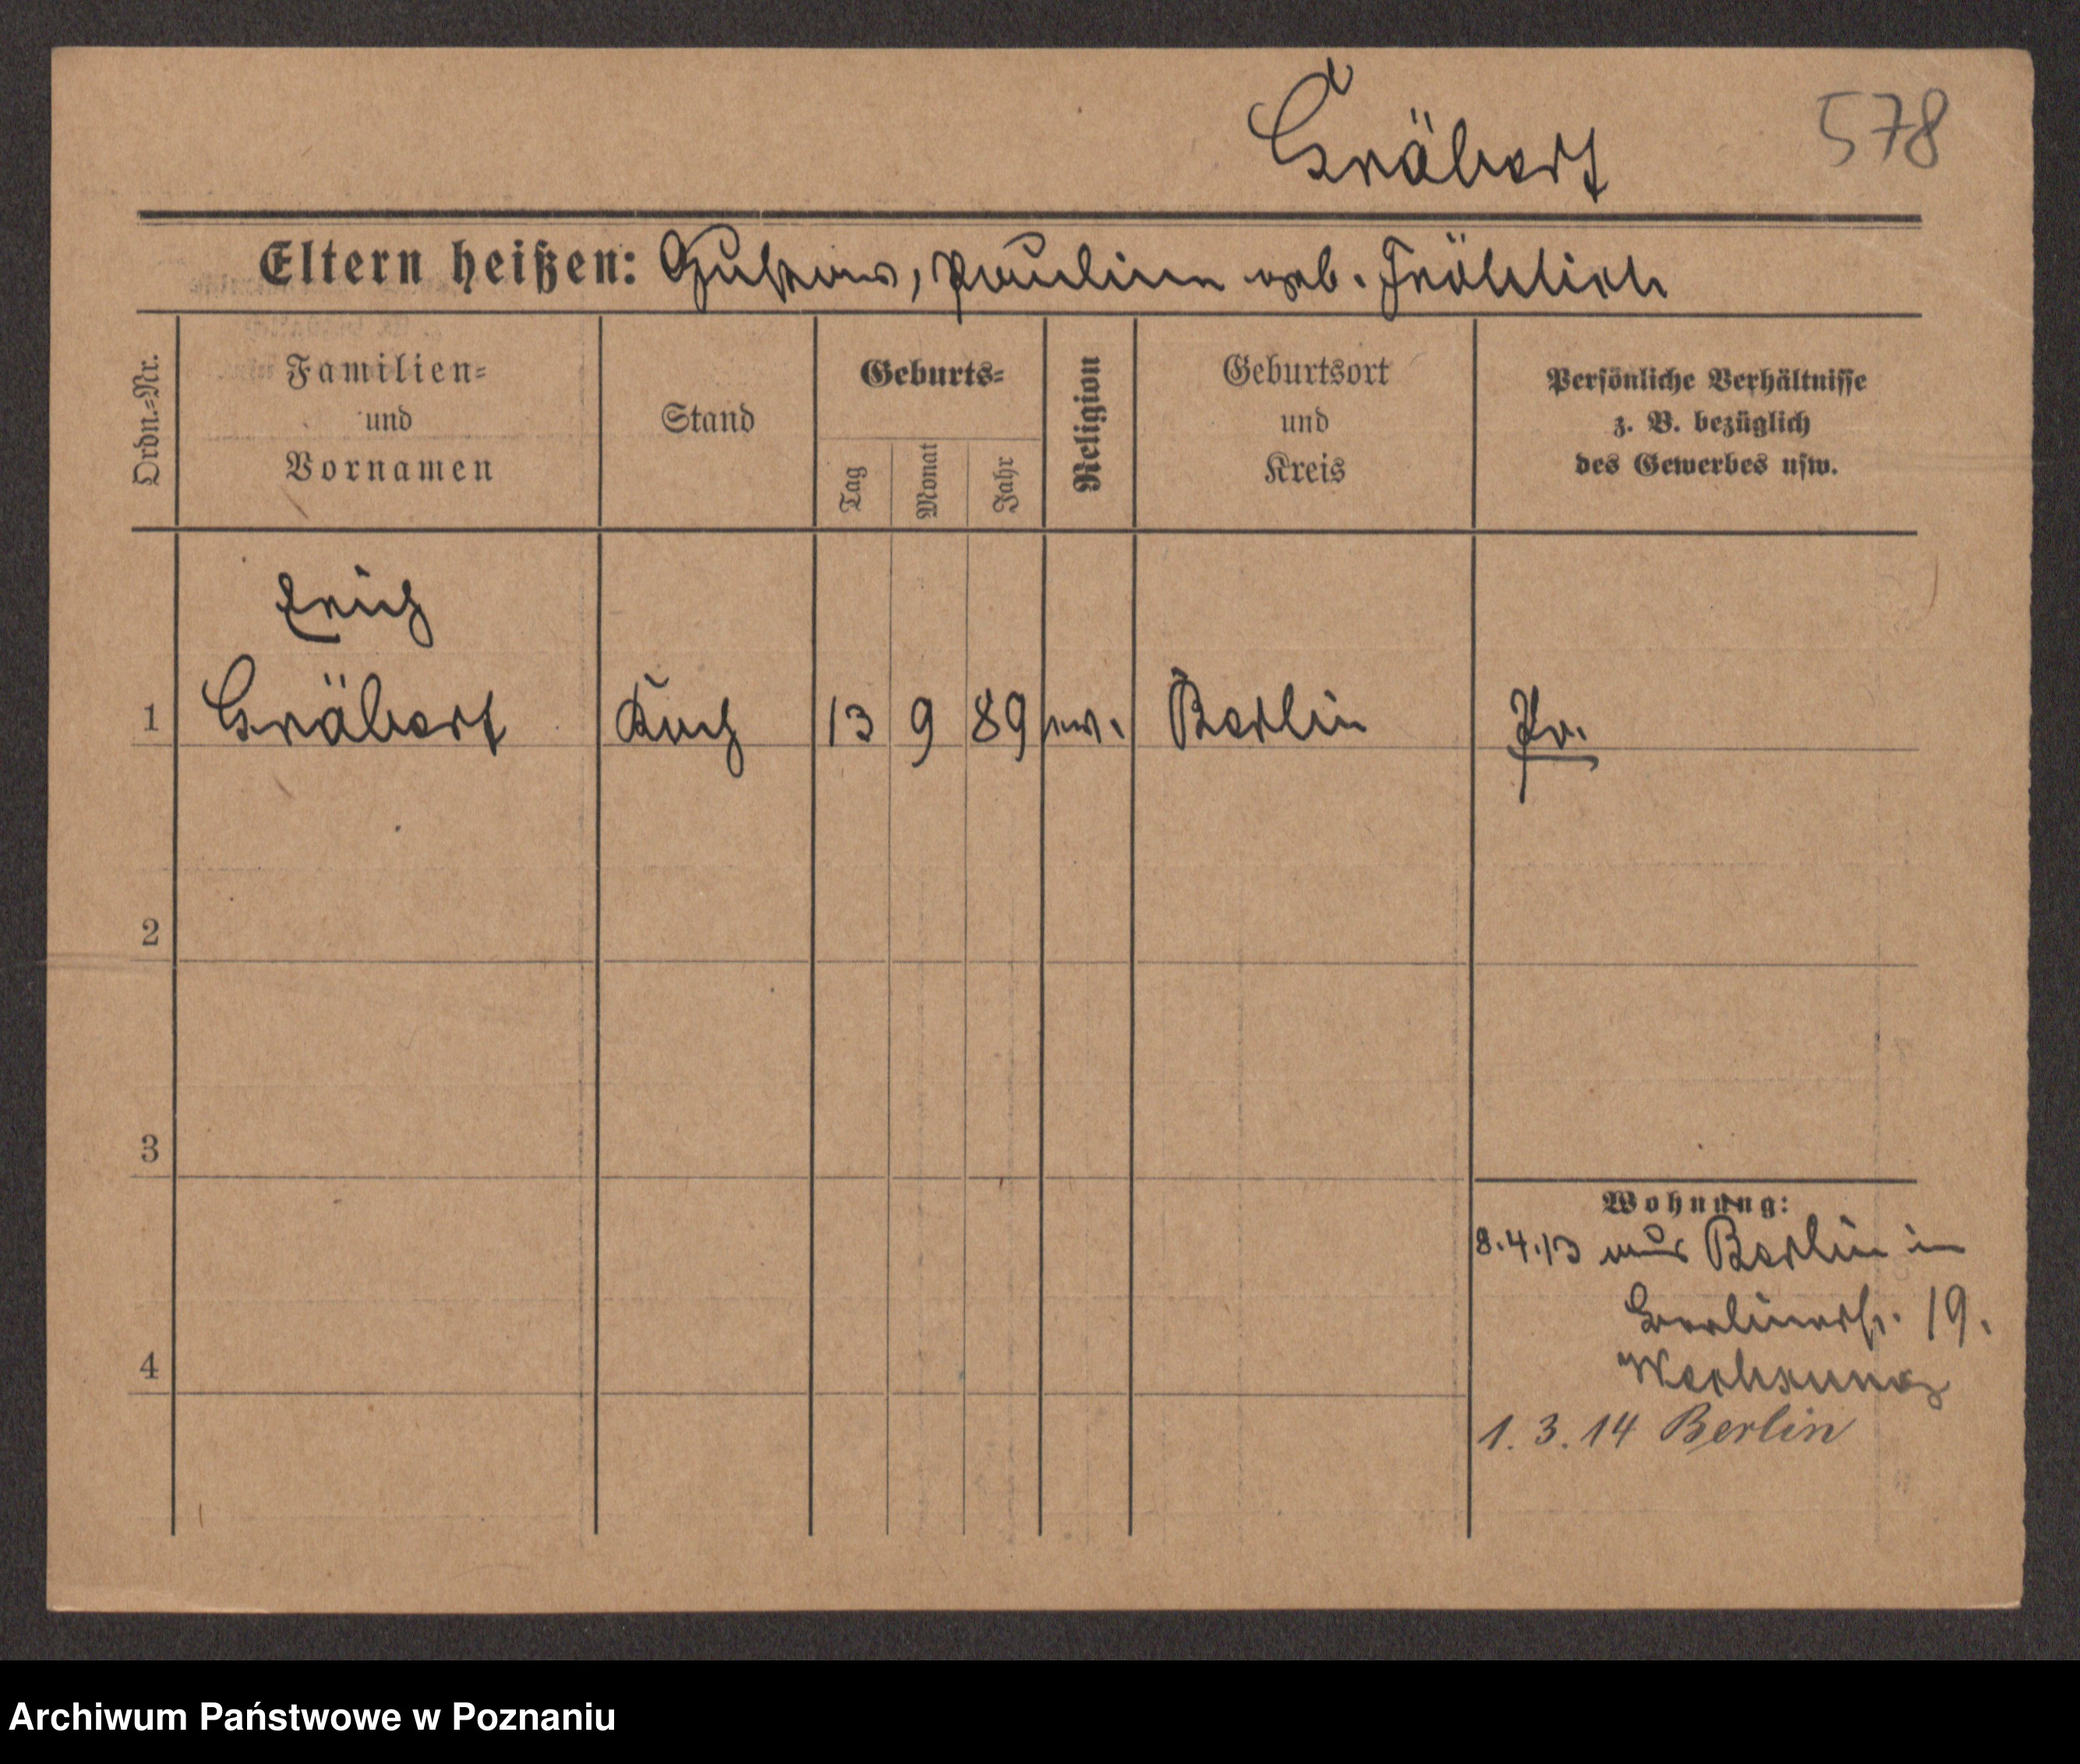 Gräbert
578
Eltern heißen: Gustav, Pauline geb. Fröhlich
Ordn.-Nr.
Familien-
und
Vornamen
Stand
Geburts-
Tag
Monat
Jahr
Religion
Geburtsort
und
Kreis
Persönliche Verhältnisse
z. B. bezüglich
des Gewerbes usw.
Erich
1 Gräbert Koch 13 9 89 ev. Berlin Pr.
2
3
4
Wohnung:
8.4.13 aus Berlin in
Berlinerstr. 19.
1.3.14 Berlin
Archiwum Państwowe w Poznaniu